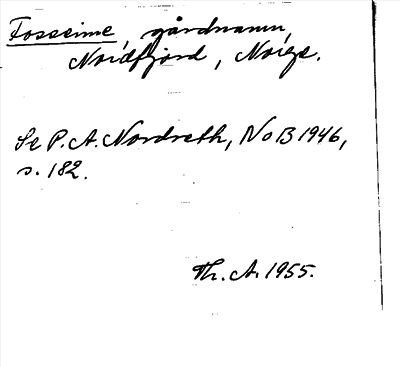 Fosseime, gårdnamn,
Nordfjord, Norge.
Se P. A. Nordreth, NoB 1946,
s. 182.
Th. A. 1955.